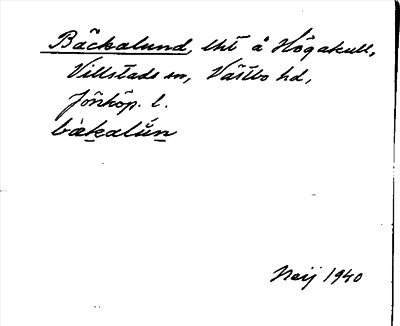 Bäckalund, lht å Högakull,
Villstads sn, Västbo hd,
Jönköp. l.
bàkalún
Neij 1940